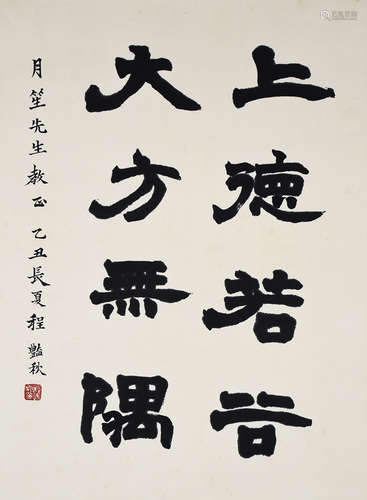 上德若谷
大方無隅
月笙先生教正 乙丑長夏程豔秋